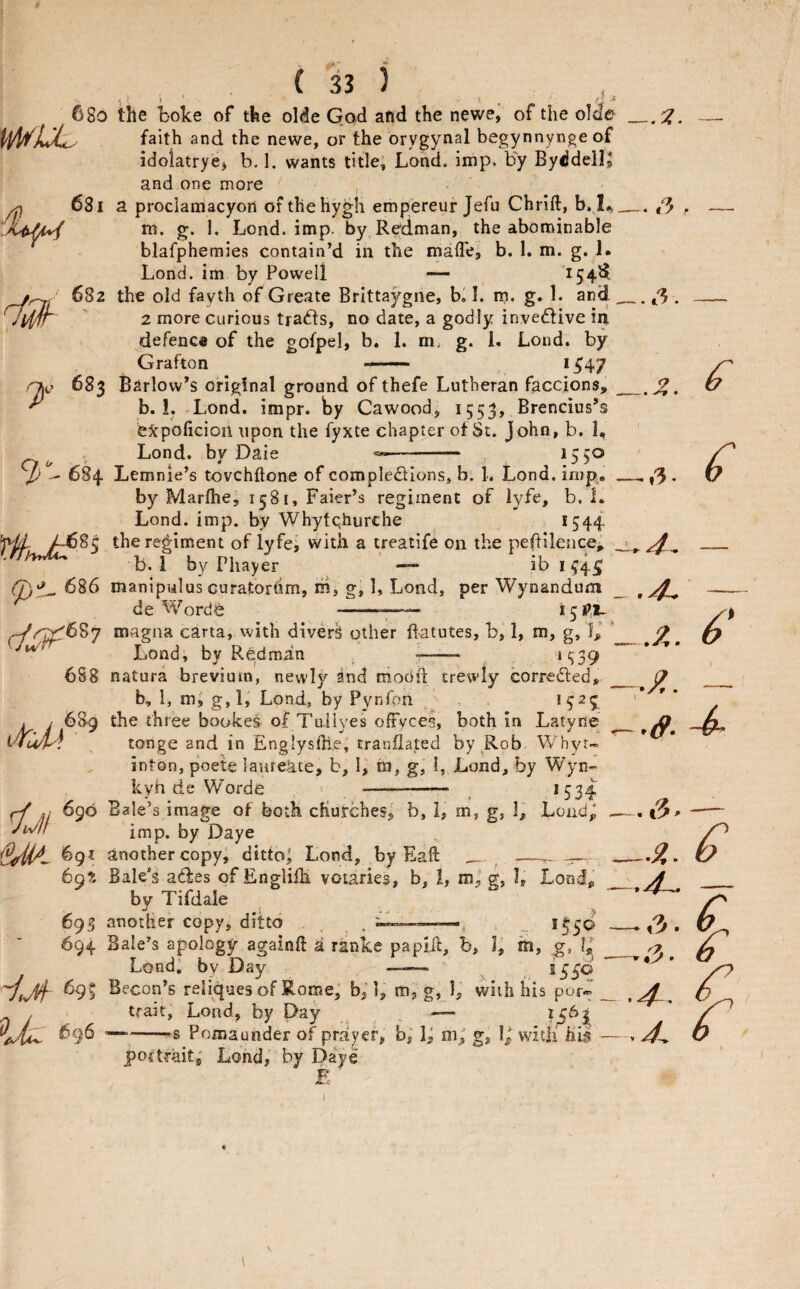 ( 33 )
680 the boke of the olde God and the newe, of the olde . 2. —
faith and the newe, or the orygynal begynnynge of
idolatrye, b. l. wants title, Lond. imp. by Byddell;
and one more
681 a proclamacyon of the hygh empereur Jeſu Chriſt, b. l. . 3 . —
m. g. l. Lond. imp. by Redman, the abominable
blaſphemies contain'd in the maſſe, b. l. m. g. l.
Lond. im by Powell — 1548
682 the old fayth of Greate Brittaygne, b. l. m. g. l. and . 3 . —
2 more curious tracts, no date, a godly invective in
defence of the goſpel, b. l. m. g. l. Lond. by
Grafton —— 1547
683 Barlow's original ground of theſe Lutheran faccions, . 2. 6
b. l. Lond. impr. by Cawood, 1553, Brencius's
expoſicion upon the fyxte chapter of St. John, b. l,
Lond. by Daie —— 1550
684 Lemnie's tovchſtone of complections, b. l. Lond. imp. . 3 . 6
by Marſhe, 1581, Faier's regiment of lyfe, b. l.
Lond. imp. by Whytchurche 1544
685 the regiment of lyfe, with a treatiſe on the peſtilence, . 4. —
b. l by Phayer — ib 1545
686 manipulus curatorum, m, g, l, Lond, per Wynandum . 4. —
de Worde ——
687 magna carta, with divers other ſtatutes, b, l, m, g, l, . 2. 6
Lond, by Redman —— 1539
688 natura brevium, newly and mooſt trewly corrected, . 2. —
b, l, m, g, l, Lond, by Pynſon 1525
689 the three bookes of Tullyes offyces, both in Latyne . 8. 6
tonge and in Englyſſhe, tranſlated by Rob Whyt-
inton, poete laureate, b, l, m, g, l, Lond, by Wyn-
kyn de Worde —— 1534
690 Bale's image of both churches, b, l, m, g, l, Lond, . 3 . —
imp. by Daye
691 another copy, ditto, Lond, by Eaſt — — — . 2. 6
692 Bale's actes of Engliſh votaries, b, l, m, g, l, Lond, . 4. —
by Tiſdale
693 another copy, ditto —— 1550 . 3 . 6
694 Bale's apology againſt a ranke papiſt, b, l, m, g, l, . 3 . 6
Lond, by Day —— 1550
695 Becon's reliques of Rome, b, l, m, g, l, with his por- . 4. 6
trait, Lond, by Day —— 1563
696 ——s Pomaunder of prayer, b, l, m, g, l, with his — . 4. 6
portrait, Lond, by Daye
E